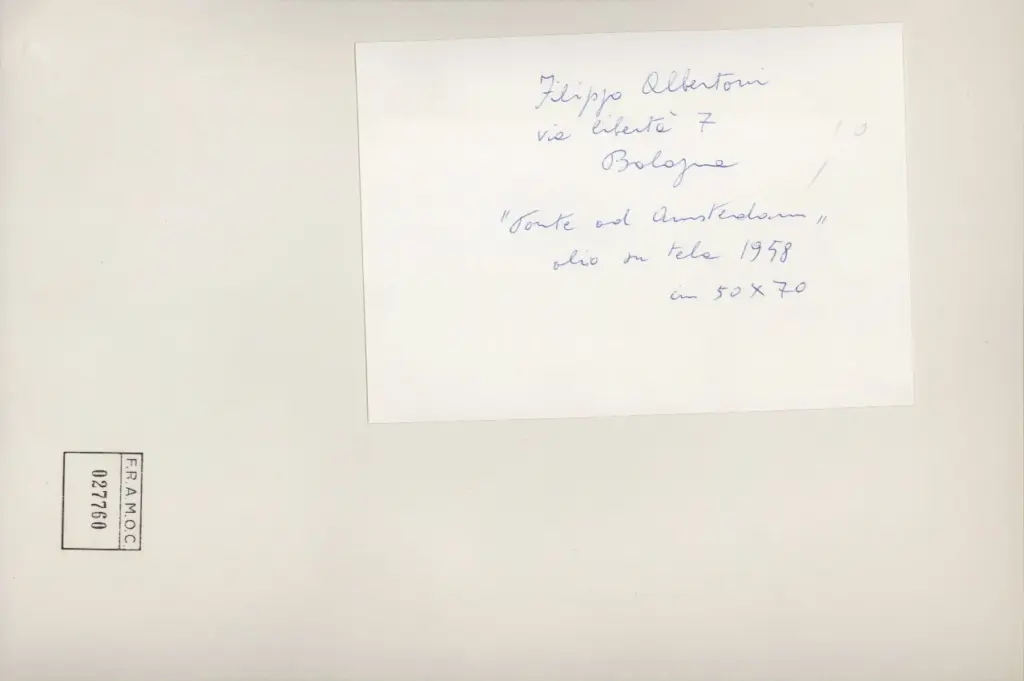 Filippo Albertoni
via libertà 7
Bologna
"Ponte ad Amsterdam"
olio su tela 1958
cm 50x70
F.R.A.M.O.C.
027760